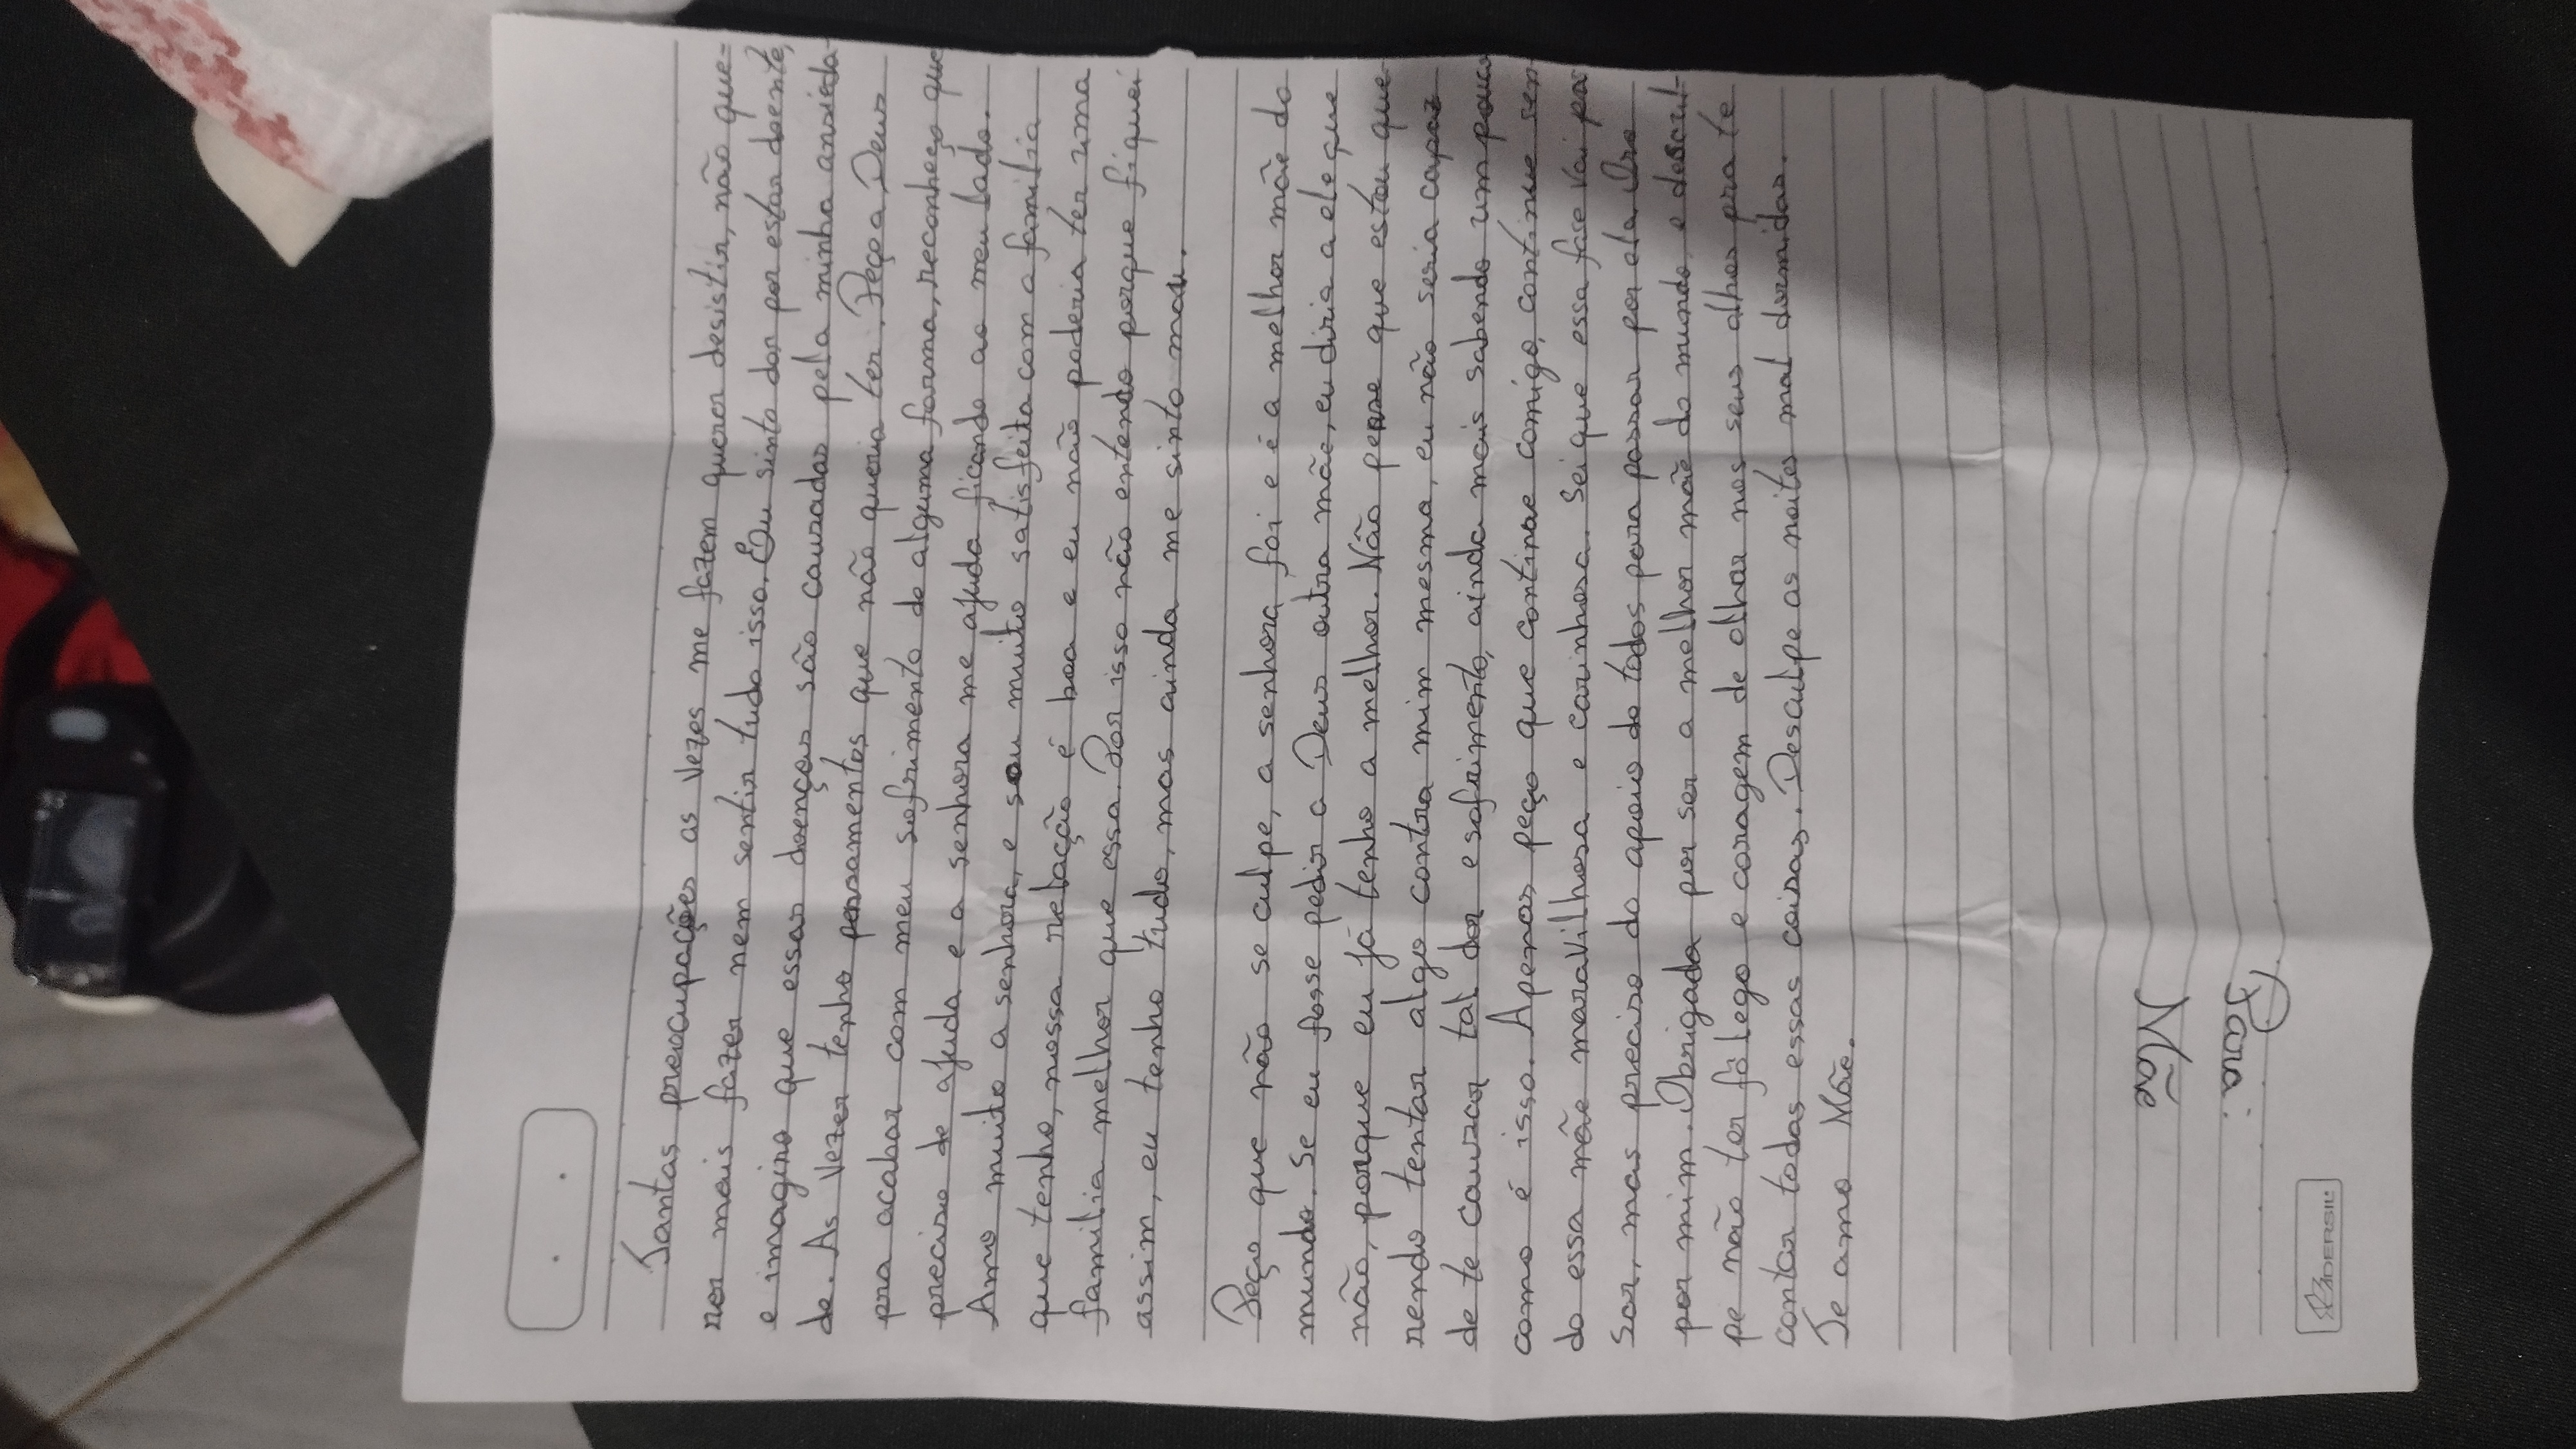 Tantas preocupações as vezes me fazem querer desistir, não que-
rer mais fazer nem sentir tudo isso. Eu sinto dor por estar doente,
e imagino que essas doenças são causadas pela minha ansieda-
de. As vezes tenho pensamentos que não queria ter. Peço a Deus
pra acabar com meu sofrimento de alguma forma, reconheço que
preciso de ajuda e a senhora me ajuda ficando ao meu lado.
Amo muito a senhora, e sou muito satisfeita com a família
que tenho, nossa relação é boa e eu não poderia ter uma
família melhor que essa. Por isso não entendo porque fiquei
assim, eu tenho tudo, mas ainda me sinto mau.
Peço que não se culpe, a senhora foi e é a melhor mãe do
mundo. Se eu fosse pedir a Deus outra mãe, eu diria a ele que
não, porque eu já tenho a melhor. Não pense que estou que-
rendo tentar algo contra mim mesma, eu não seria capaz
de te causar tal dor e sofrimento, ainda mais sabendo um pouco
como é isso. Apenas peço que continue comigo, continue sen
do essa mãe maravilhosa e carinhosa. Sei que essa fase vai pas
sar, mas preciso do apoio de todos para passar por ela. Oro
por mim. Obrigada por ser a melhor mãe do mundo, e descul-
pe não ter fôlego e coragem de olhar nos seus olhos pra te
contar todas essas coisas. Desculpe as noites mal dormidas.
Te amo Mãe.
Mãe